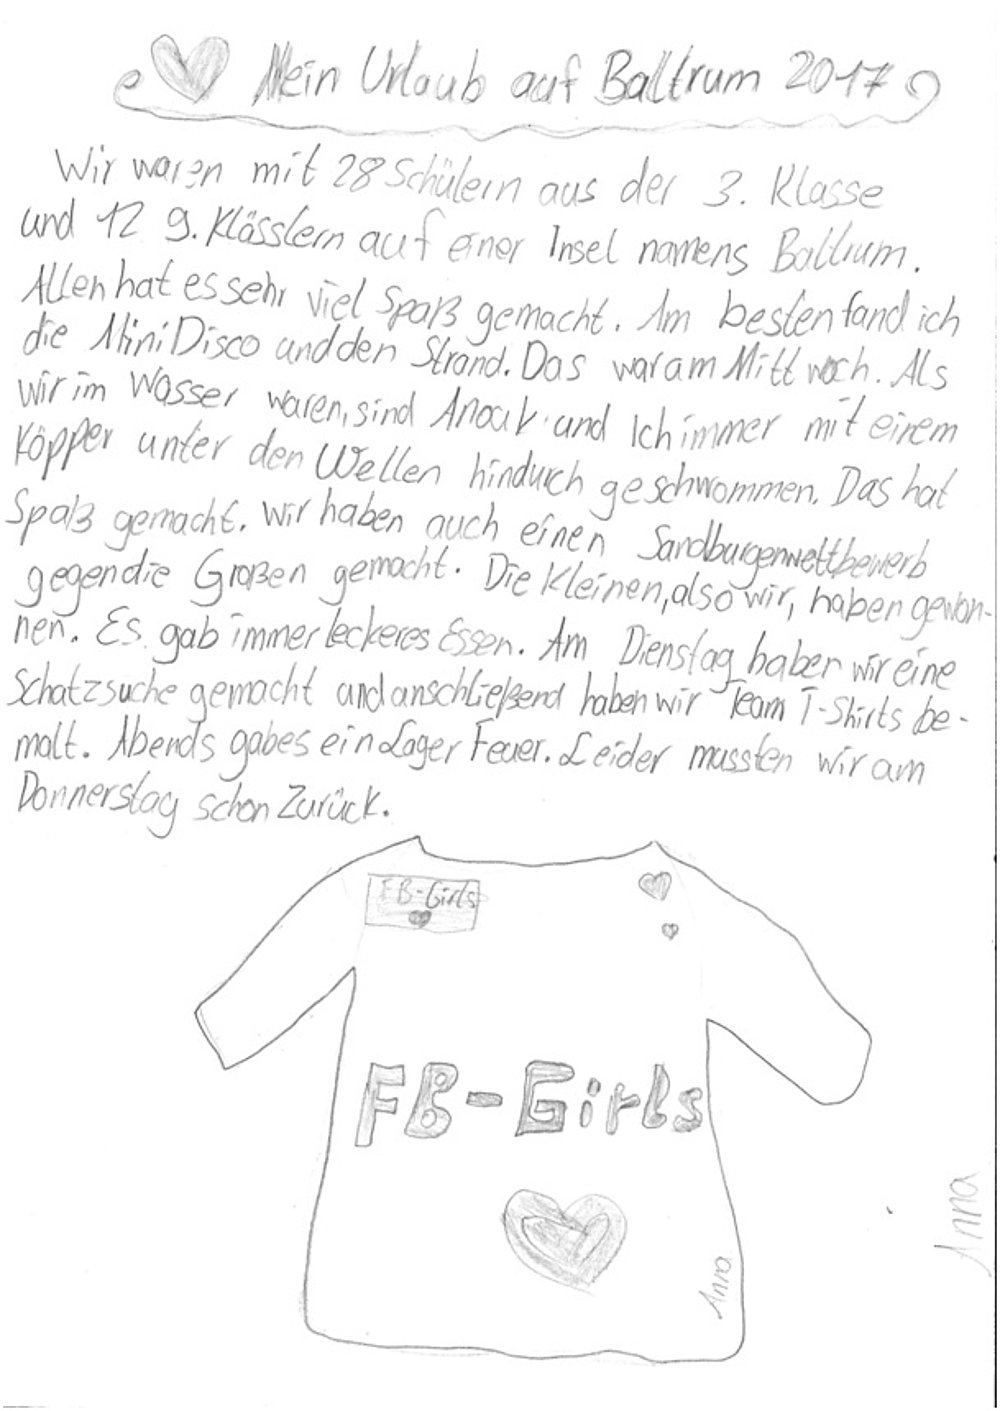 Mein Urlaub auf Baltrum 2017
Wir waren mit 28 Schülern aus der 3. Klasse
und 12 9. Klässlern auf einer Insel namens Baltrum.
Allen hat es sehr viel Spaß gemacht. Am besten fand ich
die Mini Disco und den Strand. Das war am Mittwoch. Als
wir im Wasser waren, sind Anouk und Ich immer mit einem
Köpper unter den Wellen hindurch geschwommen. Das hat
Spaß gemacht. Wir haben auch einen Sandburgenwettbewerb
gegen die Großen gemacht. Die Kleinen, also wir, haben gewon-
nen. Es gab immer leckeres Essen. Am Dienstag haben wir eine
Schatzsuche gemacht und anschließend haben wir Team T-Shirts be-
malt. Abends gab es ein Lager Feuer. Leider mussten wir am
Donnerstag schon Zurück.
FB-Girls
FB-Girls
Anna
Anna